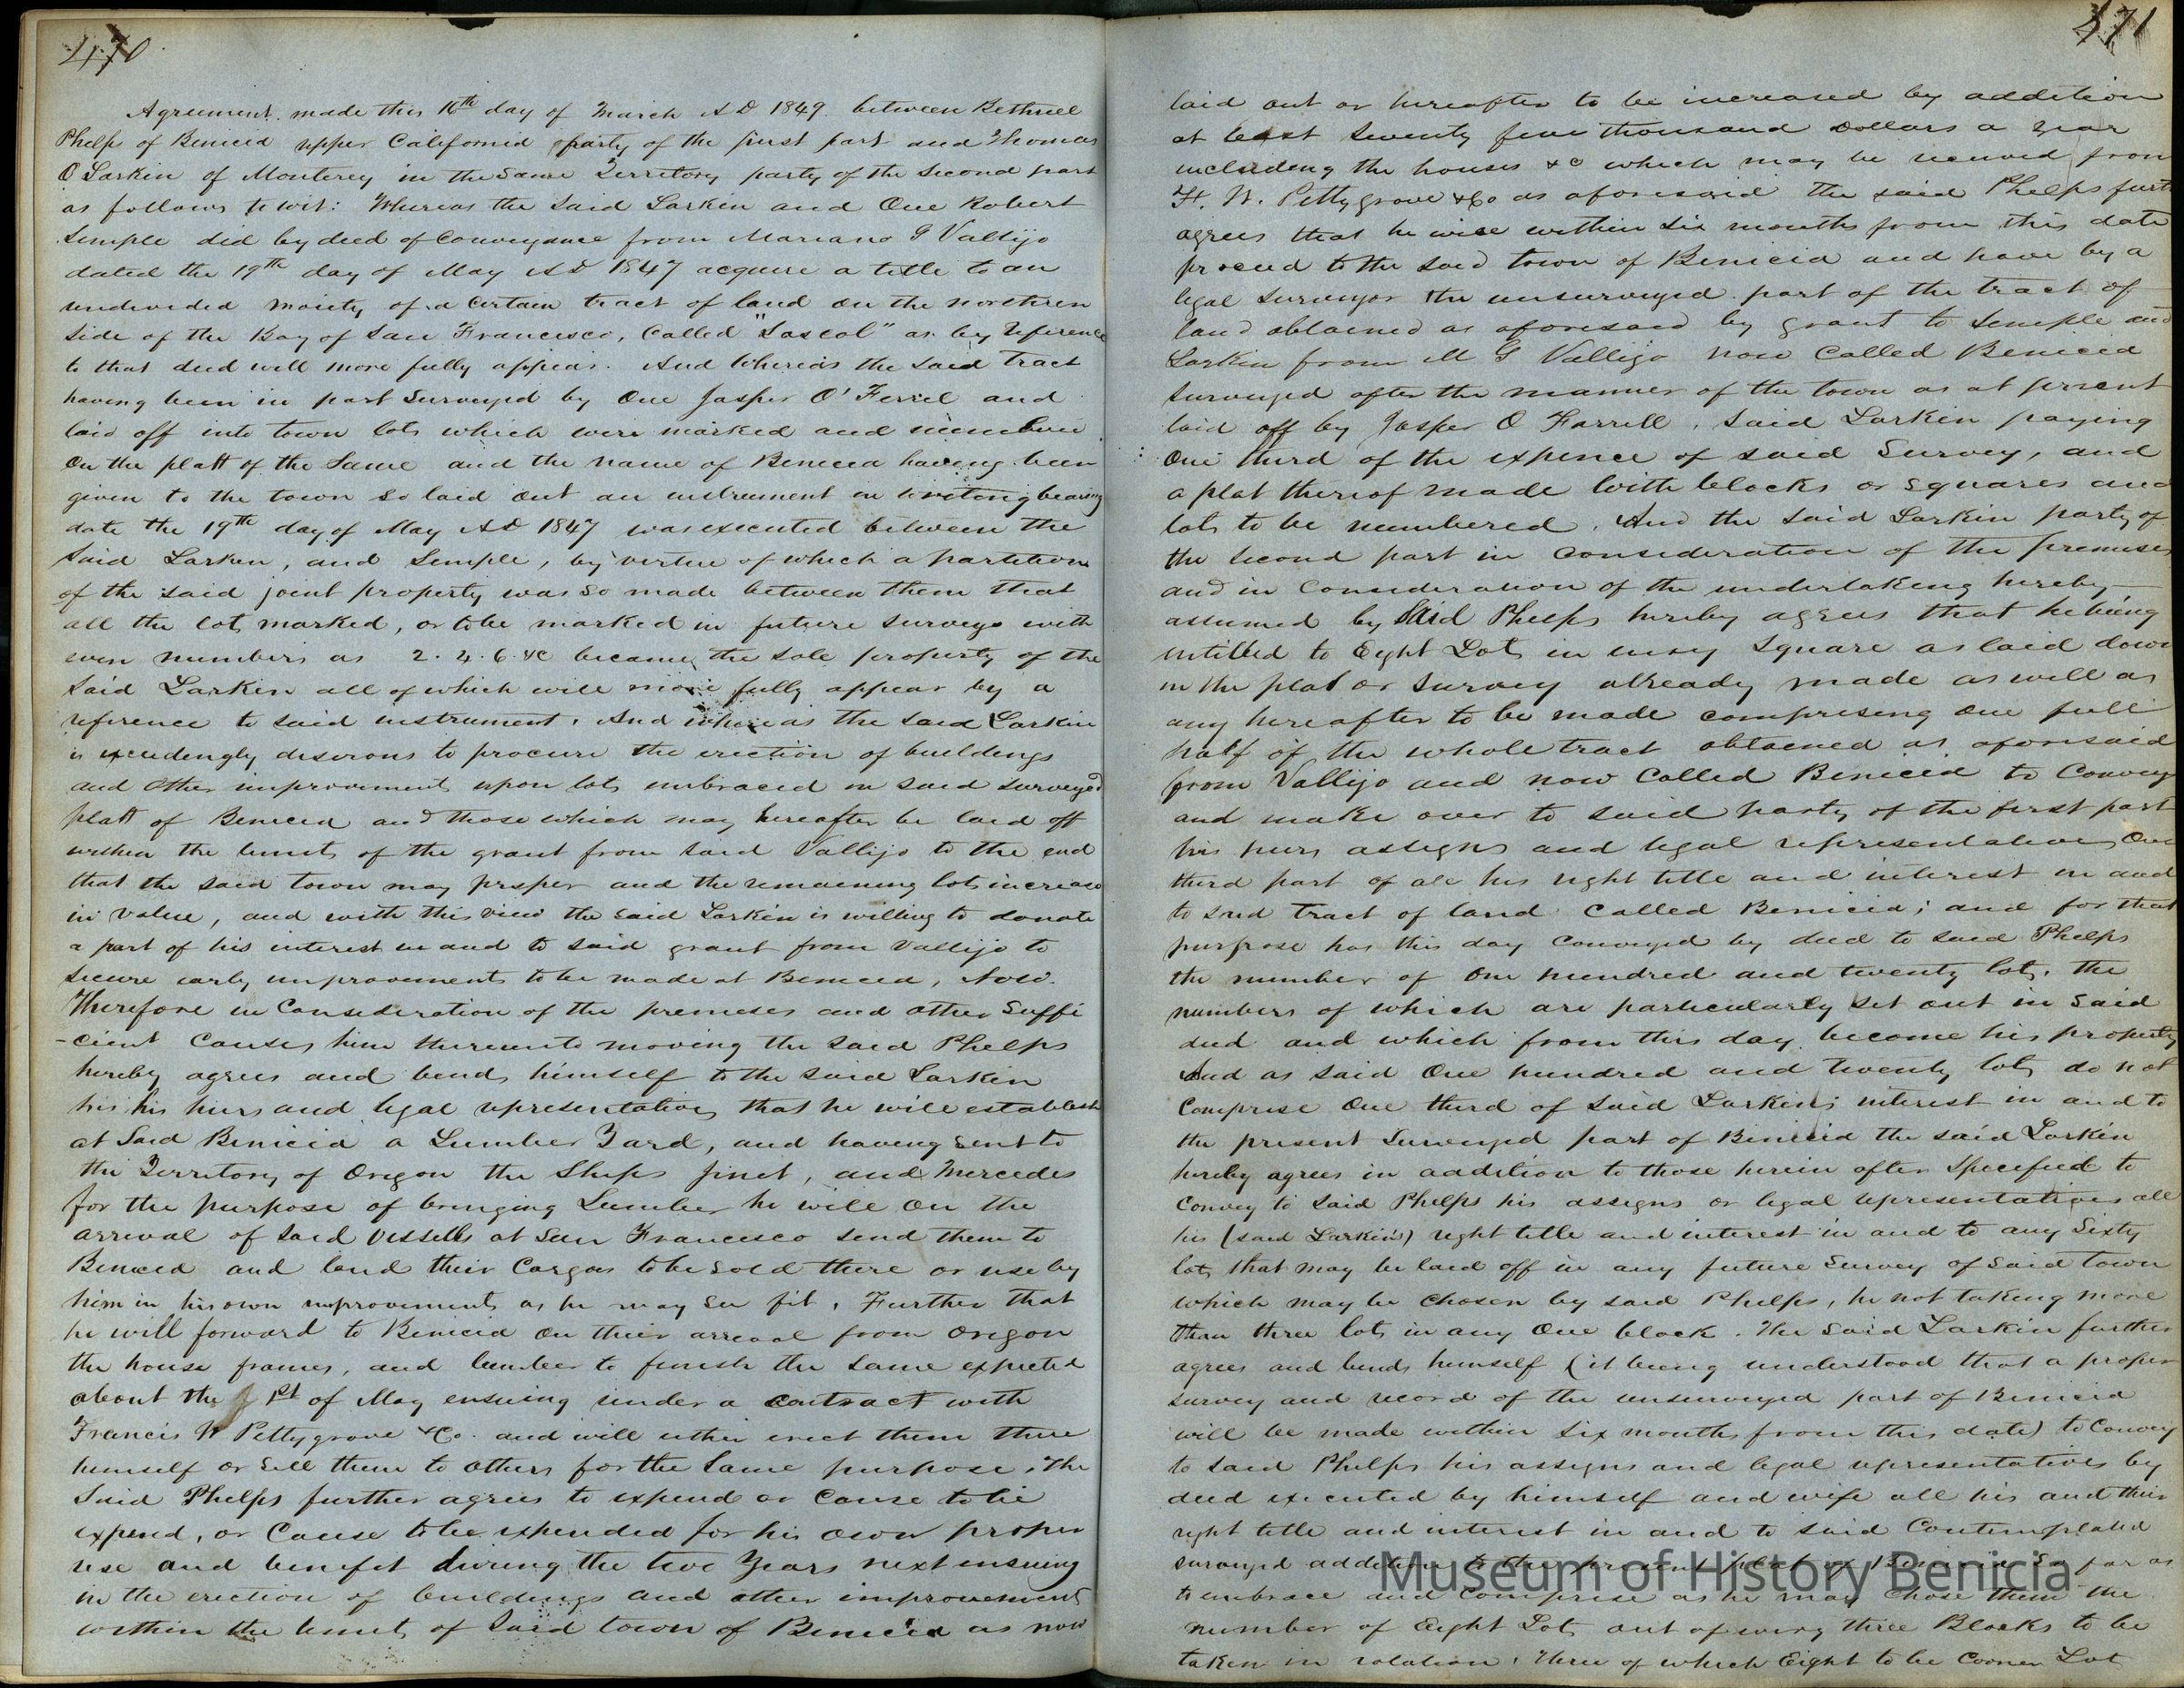 470
Agreement made this 16th day of March A D 1849 between Bethuel
Phelps of Benicia upper California party of the first part and Thomas
O Larkin of Monterey in the Same Territory party of the Second part
as follows to wit: Whereas the Said Larkin and One Robert
Semple did by deed of Conveyance from Mariano G Vallijo
dated the 19th day of May A D 1847 acquire a title to an
undivided moiety of a Certain tract of land on the northern
Side of the Bay of San Francisco, Called "Soscol" as by reference
to that deed will more fully appear. And Whereas the Said Tract
having been in part Surveyed by One Jasper O'Ferrel and
laid off into town lots which were marked and
on the platt of the Same and the name of Benicia having been
given to the town so laid out an instrument in writing bearing
date the 19th day of May A D 1847 was executed between the
Said Larken, and Semple, by virtue of which a partition
of the said joint property was so made between them that
all the lots marked, or to be marked in future surveys with
even numbers as 2. 4. 6. &c became the sole property of the
Said Larkin all of which will more fully appear by a
reference to said instrument. And whereas the said Larkin
is exceedingly desirous to procure the erection of buildings
and other improvements upon lots embraced in said surveyed
platt of Benicia and those which may hereafter be laid off
within the limits of the grant from said Vallijo to the end
that the said town may prosper and the remaining lots increase
in value, and with this view the said Larkin is willing to donate
a part of his interest in and to said grant from Vallijo to
secure early improvements to be made at Benicia, Now.
Therefore in Consideration of the premises and other Suffi
-cient Causes him thereunto moving the said Phelps
hereby agrees and binds himself to the said Larkin
his his heirs and legal representatives that he will establish
at Said Benicia a Lumber Yard, and having sent to
the Territory of Oregon the Ships Janet, and Mercedes
for the purpose of bringing Lumber he will on the
arrival of said vessells at San Francisco send them to
Benicia and land their Cargos to be sold there or use by
him in his own improvements as he may see fit. Further that
he will forward to Benicia on their arrival from Oregon
the house frames, and lumber to finish the same expected
about the 1st of May ensuing under a contract with
Francis W Pettygrove & Co. and will either erect them there
himself or Sell them to others for the Same purpose. The
Said Phelps further agrees to expend or Cause to be
expend, or Cause to be expended for his own proper
use and benefit during the two Years next ensuing
in the erection of buildings and other improvements
within the limits of Said town of Benicia as now
471
laid out or hereafter to be increased by addition
at least Seventy five thousand Dollars a Year
including the houses &c which may be received from
F. W. Pettygrove & Co as aforesaid The said Phelps furt
agrees that he will within six months from this date
proceed to the said town of Benicia and have by a
legal Surveyor the unsurveyed part of the tract of
land obtained as aforesaid by grant to Semple and
Larkin from M G Vallijo now Called Benicia
surveyed after the manner of the town as at present
laid off by Jasper O Farrell. Said Larkin paying
One third of the expence of said Survey, and
a plat thereof made with blocks or squares and
lots to be numbered. And the said Larkin party of
the second part in consideration of the premises
and in consideration of the undertaking hereby
assumed by Said Phelps hereby agrees that he being
intitled to Eight Lots in every Square as laid down
in the plat or survey already made as well as
any hereafter to be made comprising one full
half of the whole tract obtained as aforesaid
from Vallijo and now Called Benicia to Convey
and make over to said party of the first part
his heirs assigns and legal representatives One
third part of all his right title and interest in and
to said tract of land Called Benicia; and for that
purpose has this day Conveyed by deed to Said Phelps
the number of One hundred and twenty lots. The
numbers of which are particularly set out in said
deed and which from this day become his property
And as said One hundred and Twenty lots do not
Comprise One third of Said Larkins interest in and to
the present Surveyed part of Benicia the said Larkin
hereby agrees in addition to those herein after Specified to
Convey to said Phelps his assigns or legal representatives all
his (said Larkin's) right title and interest in and to any Sixty
lots that may be laid off in any future Survey of said town
which may be chosen by said Phelps, he not taking more
than three lots in any One block. The said Larkin further
agrees and binds himself (it being understood that a proper
survey and record of the unsurveyed part of Benicia
will be made within Six months from this date) to Convey
to said Phelps his assigns and legal representatives by
deed executed by himself and wife all his and their
right title and interest in and to said Contemplated
surveyed addition to the present plat of Benicia So far as
to embrace and Comprise as he may Chose them the
number of Eight Lots out of every three Blocks to be
taken in rotation. Three of which Eight to be Corner Lot
Museum of History Benicia